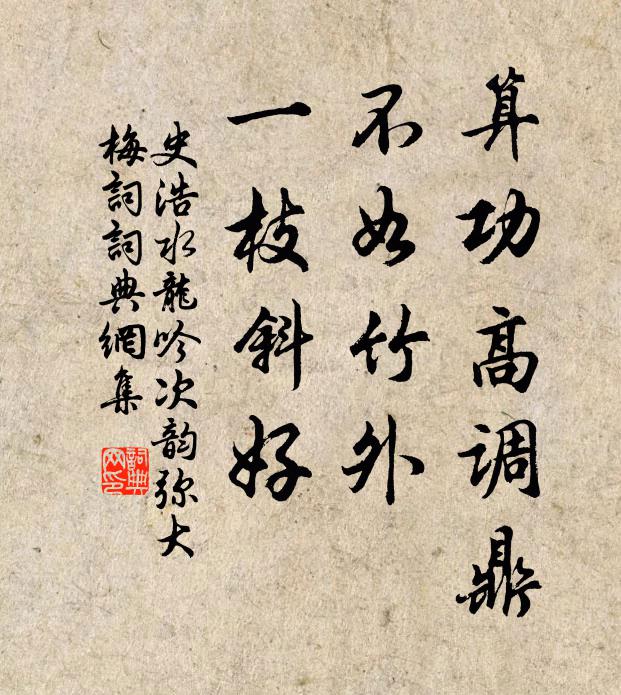 算功高调鼎
不如竹外
一枝斜好
史浩水龍吟次韵弥大
梅詞詞典網集
詞典网印